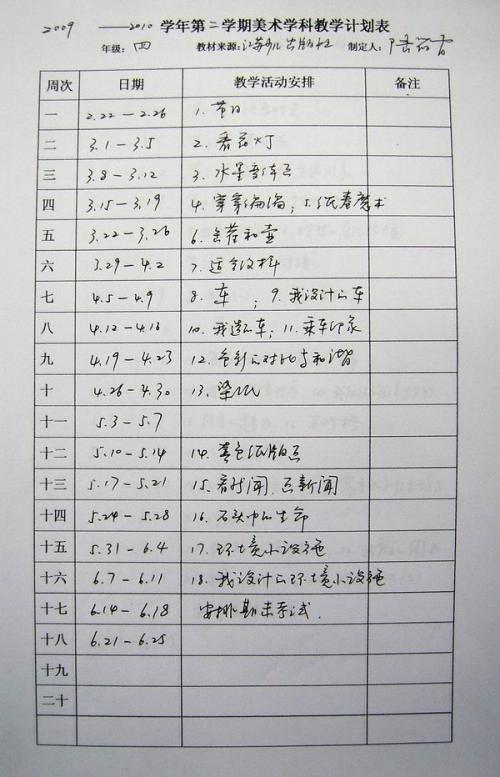 2009 ——2010 学年第二学期美术学科教学计划表
年级：四 教材来源：江苏少儿出版社 制定人：
周次 日期 教学活动安排 备注
一 2.22—2.26 1. 节日
二 3.1—3.5 2. 看花灯
三 3.8—3.12 3. 水墨画
四 3.15—3.19 4. 穿穿编编；5. 纸卷魔术
五 3.22—3.26 6. 荷和壶
六 3.29—4.2 7. 适合纹样
七 4.5—4.9 8. 车；9. 我设计的车
八 4.12—4.16 10. 我造的车；11. 乘车印象
九 4.19—4.23 12. 色彩的对比与和谐
十 4.26—4.30 13. 染纸
十一 5.3—5.7
十二 5.10—5.14 14. 纸版画
十三 5.17—5.21 15. 看新闻、画新闻
十四 5.24—5.28 16. 石头中的生命
十五 5.31—6.4 17. 环境小设施
十六 6.7—6.11 18. 我设计的环境小设施
十七 6.14—6.18 安排期末考试.
十八 6.21—6.25
十九
二十